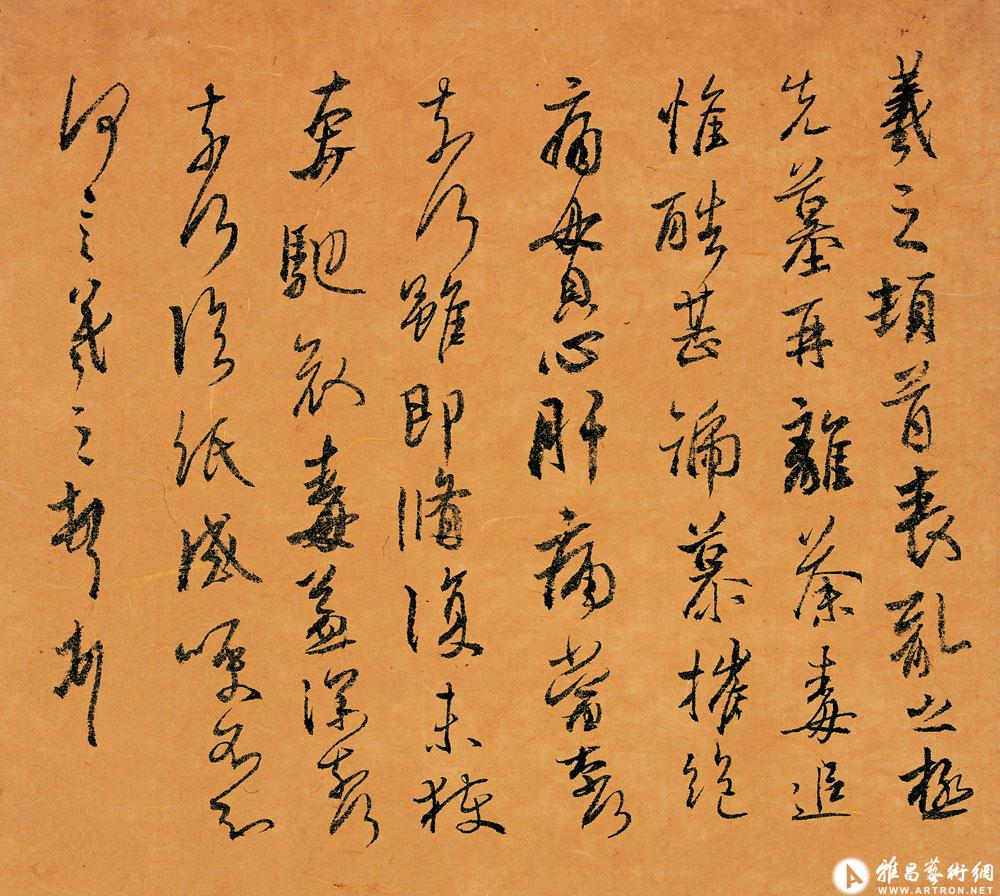 羲之頓首喪亂之極
先墓再離荼毒追
惟酷甚號慕摧絕
痛貫心肝痛當奈何
奈何雖即脩復未獲
奔馳哀毒益深奈何
奈何臨紙感哽不知
何言羲之頓首頓首
雅昌藝術網
WWW.ARTRON.NET